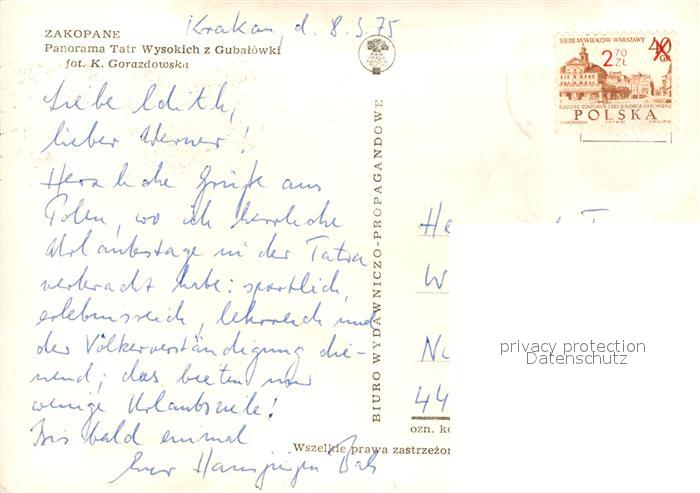 Krakau, d. 8.5.75
ZAKOPANE
Panorama Tatr Wysokich z Gubałówki
fot. K. Gorazdowska
SIEDEM WIEKÓW WARSZAWY
40 GR
2 70 ZŁ
POLSKA
Liebe Edith,
lieber Werner!
Herzliche Grüße aus
Polen, wo ich herrliche
Urlaubstage in der Tatra
verbracht habe: sportlich,
erlebnisreich, lehrreich und
der Völkerverständigung die-
nend; das bieten nur
wenige Urlaubsziele!
Bis bald einmal
Euer Hansjürgen
BIURO WYDAWNICZO-PROPAGANDOWE
He
W
44
privacy protection
Datenschutz
ozn. ko
Wszelkie prawa zastrzeżon